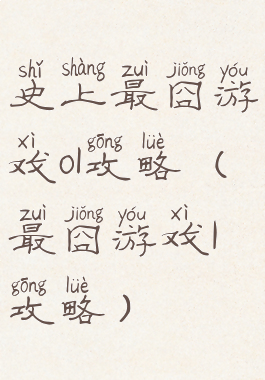 shǐ shàng zuì jiǒng yóu
史上最囧游
xì gōng lüè
戏01攻略（
zuì jiǒng yóu xì
最囧游戏1
gōng lüè
攻略）